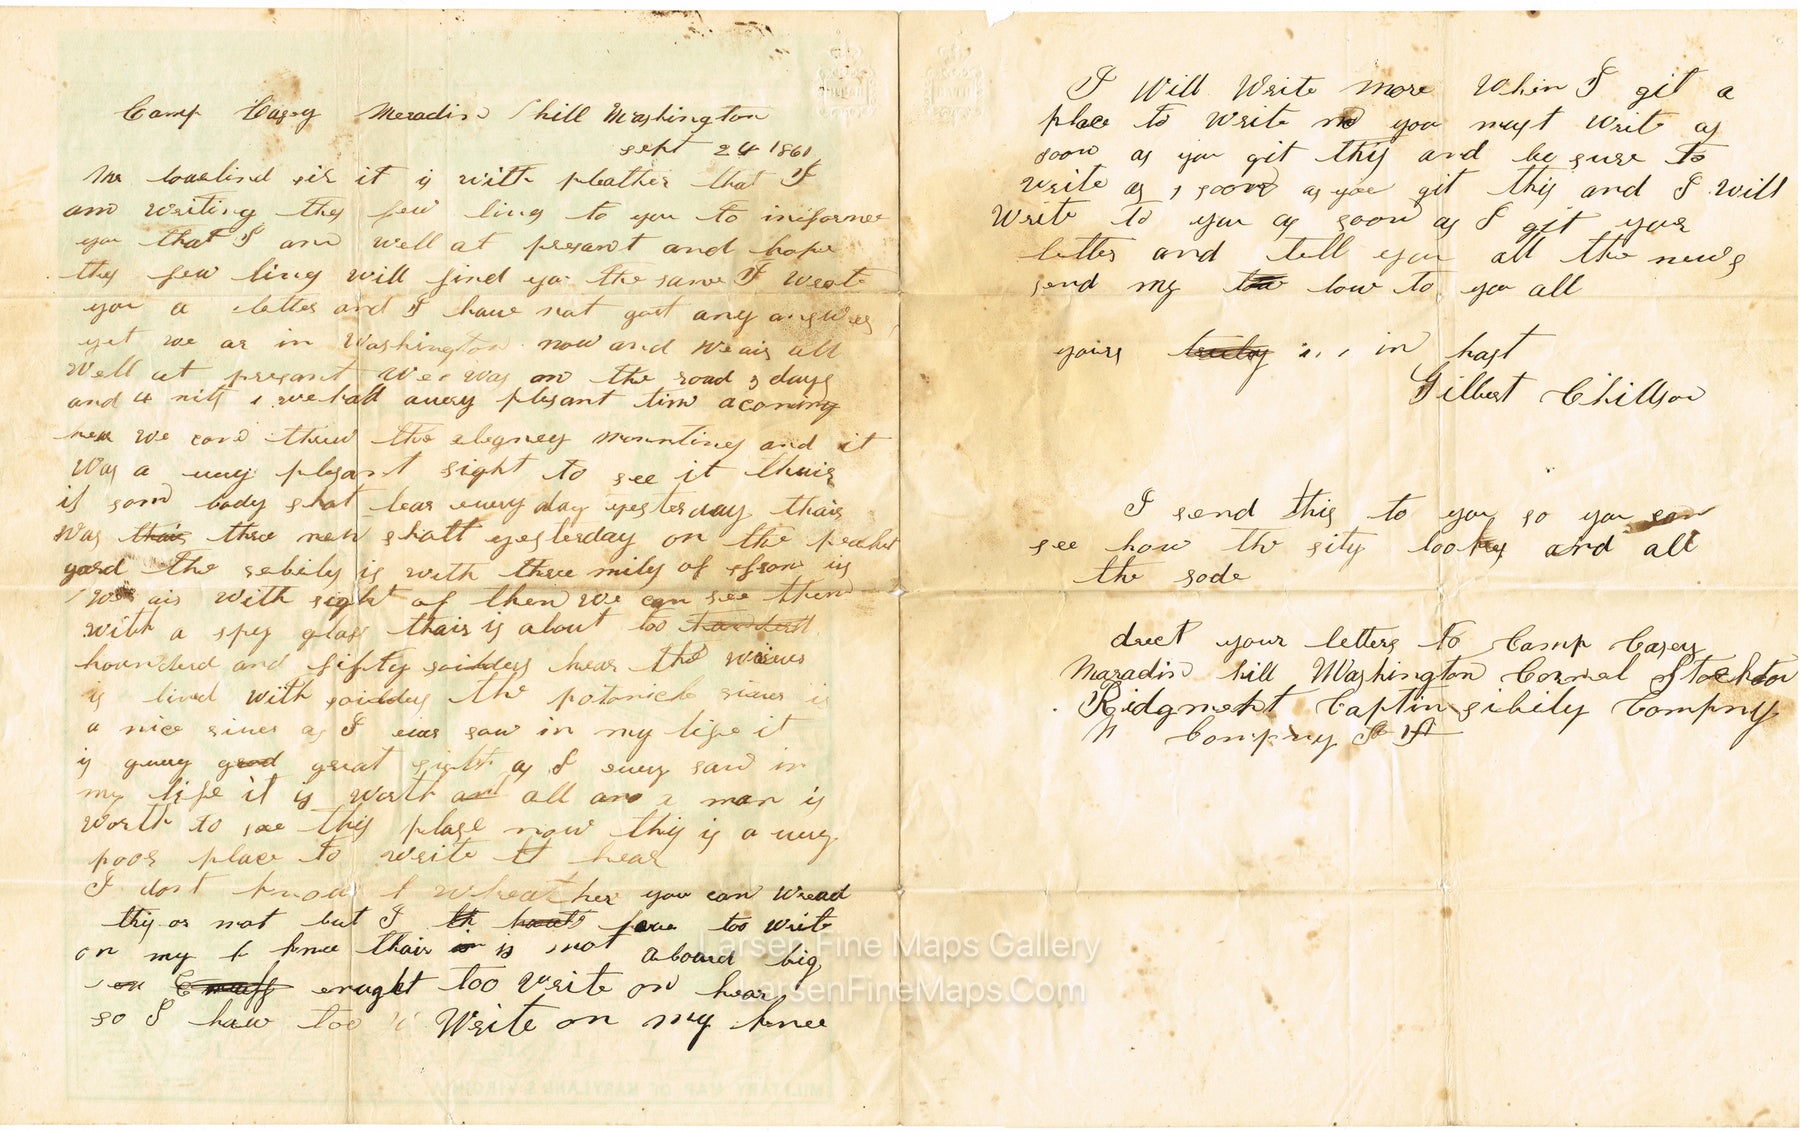 Camp Casey Meradin hill Washington
sept 24 1861
Mr lovelind sir it is with pleather that I
am writing thes few lines to you to informe
you that I am well at presant and hope
thes few lines will find you the same I wrote
you a letter and I have not got any answer
yet we ar in Washington now and we air all
well at presant we was on the road 3 days
and 4 nits we hall avery plesant time acoming
hear we come threw the elegney mountins and it
was a very plesant sight to see it thair
is some body shot hear every day yesterday thair
was thair three men shott yesterday on the peaket
gard the rebils is with three miles of from us
we air with sight of them we can see them
with a spey glass thair is about too
hounderd and fifty soilders hear the wiver
is lined with soilders the potomick river is
a nice river as I ever saw in my life it
is avery good great sight as I every saw in
my life it is worth and all and a man is
worth to see this plase now this is a very
poor place to write it hear
I dont know wheather you can wread
this or not but I have too write
on my knee thair is not aboard big
enught too write on hear
so I have too Write on my knee
I Will Write more When I git a
place to write no you must write as
soon as you git this and be sure to
write as soon as you git this and I will
Write to you as soon as I git your
letter and tell you all the news
send my love to you all
yours truley in hast
Gilbert Chillson
I send this to you so you can
see how the sity lookes and all
the rode
drect your letters to Camp Casey
Maradin hill Washington Cornel Stockton
Ridgment Captin sibily Compny
Compny
Larsen Fine Maps Gallery
LarsenFineMaps.Com